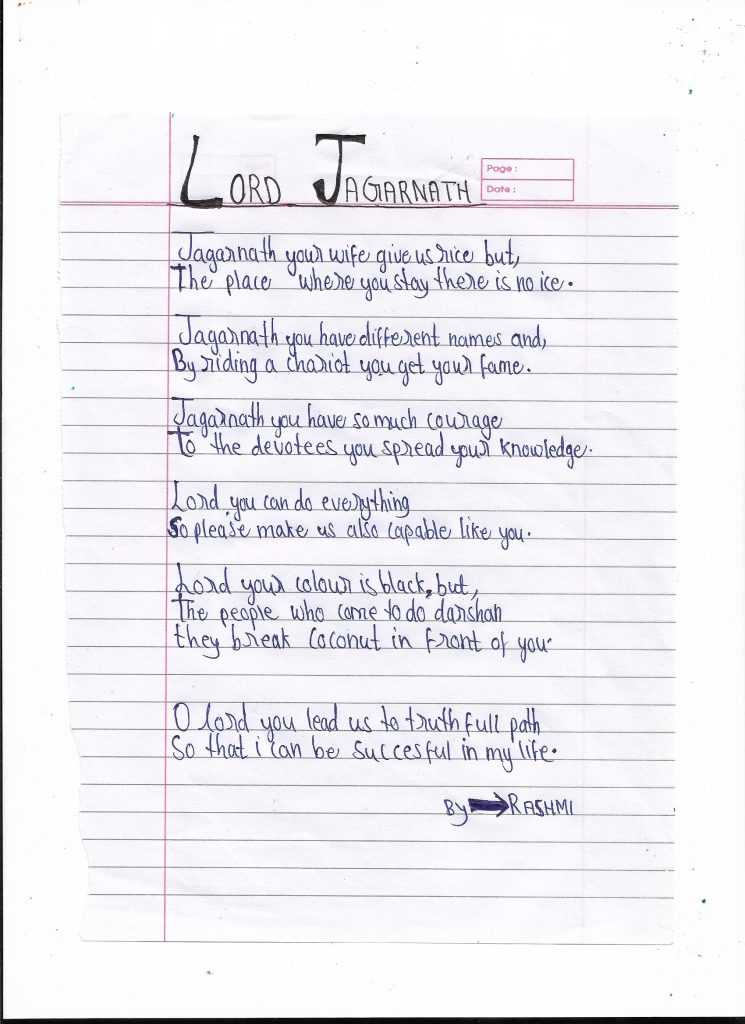 LORD JAGARNATH
Page :
Date :
Jagarnath your wife give us rice but,
The place where you stay there is no ice.
Jagarnath you have different names and,
By riding a chariot you get your fame.
Jagarnath you have so much courage
To the devotees you spread your knowledge.
Lord you can do everything
So please make us also capable like you.
Lord your colour is black, but,
The people who come to do darshan
they break coconut in front of you.
O lord you lead us to truth full path
So that i can be succesful in my life.
BY → RASHMI